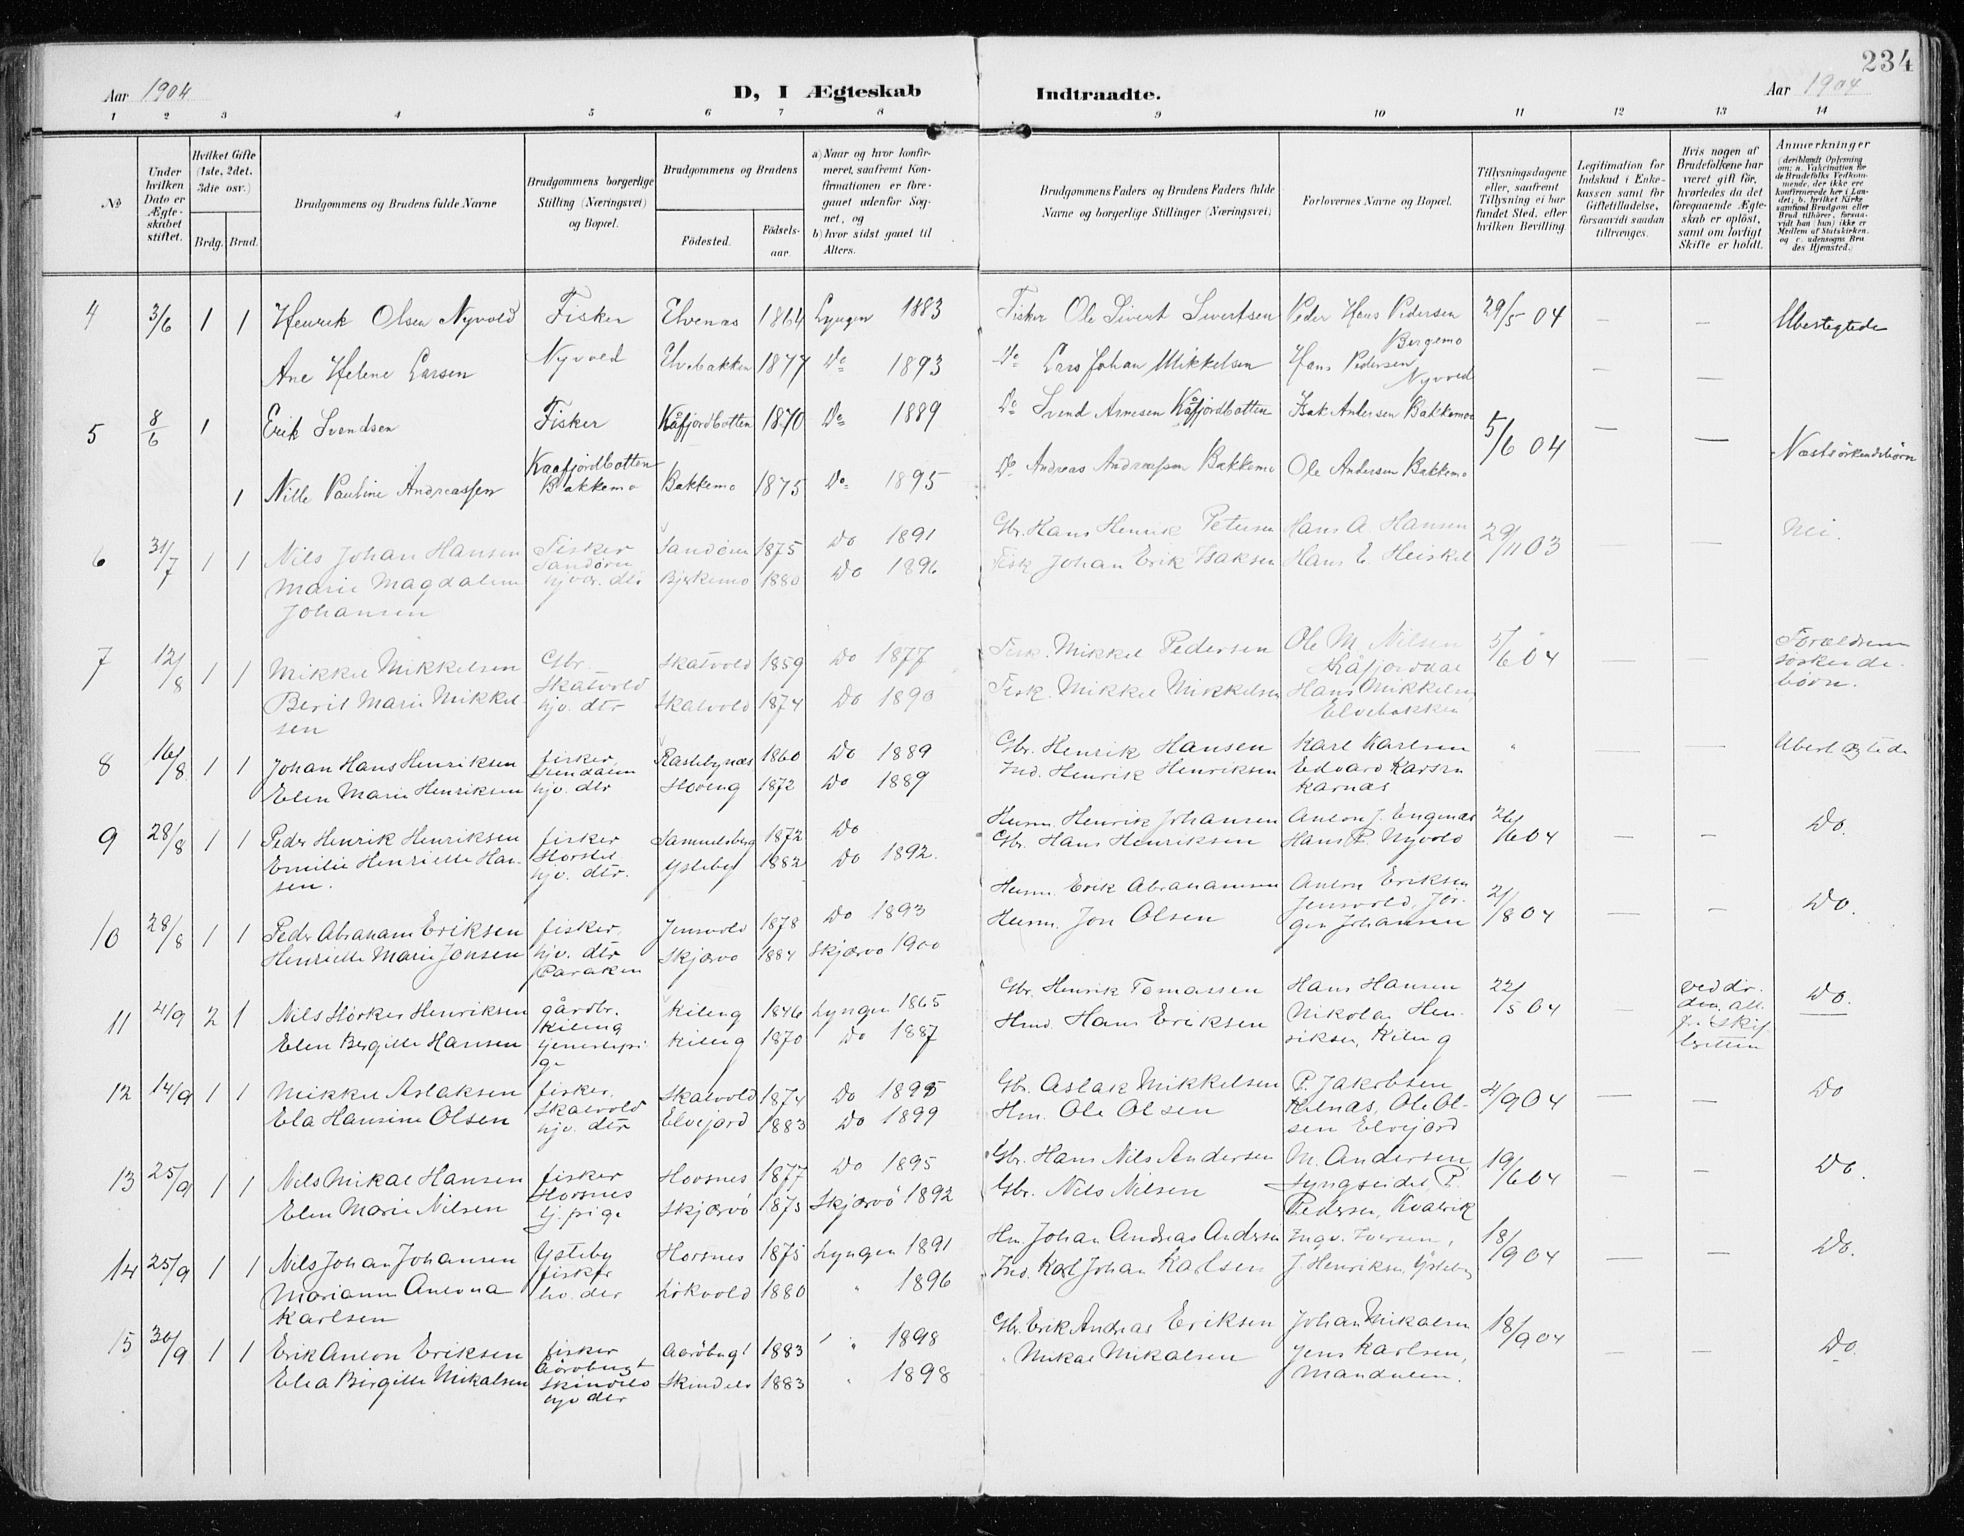 234
Aar 1904 D, I Ægteskab Indtraadte. Aar 1904
1 2 3 4 5 6 7 8 9 10 11 12 13 14
No.
Under hvilken Dato er Ægteskabet stiftet.
Hvilket Gifte (1ste, 2det, 3die osv.)
Brdg. Brud.
Brudgommens og Brudens fulde Navne
Brudgommens borgerlige Stilling (Næringsvei) og Bopæl.
Brudgommens og Brudens
Fødested. Fødselsaar.
a) Naar og hvor konfirmeret, saafremt Konfirmationen er foregaaet udenfor Sognet, og
b) hvor sidst gaaet til Alters.
Brudgommens Faders og Brudens Faders fulde Navne og borgerlige Stillinger (Næringsvei)
Forlovernes Navne og Bopæl.
Tillysningsdagene eller, saafremt Tillysning ei har fundet Sted, efter hvilken Bevilling.
Legitimation for Indskud i Enkekassen samt for Giftetilladelse, forsaavidt saadan tiltrænges.
Hvis nogen af Brudefolkene har været gift før, hvorledes da det foregaaende Ægteskab er opløst, samt om lovligt Skifte er holdt.
Anmerkninger
4 3/6 1 1 Henrik Olsen Nyvold Fisker Elvenas 1864 Lyngen 1883 Fisker Ole Sivert Sivertsen Peder Hans Pedersen Bergemo 29/5 04 — — Ubeslegtede
Ane Helene Larsen Nyvold Elvebakken 1877 Do 1893 Do Lars Johan Mikkelsen Hans Pedersen Nyvold — —
5 8/6 1 Erik Svendsen Fisker Kåfjordbotten 1870 Do 1889 Do Svend Arnesen Kåfjordbotten Isak Andersen Bakkemo 5/6 04 — — Næstsøskendebørn
Kaafjordbotten
1 Nille Pauline Andreassen Bakkemo Bakkemo 1875 Do 1895 Do Andreas Andreassen Bakkemo Ole Andersen Bakkemo
6 31/7 1 1 Nils Johan Hansen Fisker Sandøren 1875 Do 1891 Gbr. Hans Henrik Petersen Hans A. Hansen 29/11 03 Nei.
Marie Magdalena Johansen Bjerkemo 1880 Do 1896 Fisk. Johan Erik Isaksen Hans E. Heiskel
7 12/8 1 1 Mikkel Mikkelsen Gbr. Skatvold Skatvold 1859 Do 1877 Fisk. Mikkel Pedersen Ole M. Nilsen Kåfjorddal 5/6 04 Forældrene søskendebørn.
Berit Marie Mikkelsen hjv. dtr Skatvold 1874 Do 1890 Fisk. Mikkel Mikkelsen Hans Mikkelsen, Elvebakken
8 16/8 1 1 Johan Hans Henriksen fisker, Rastebynæs 1860 Do 1889 Gbr. Henrik Hansen Karl Karlsen " Ubeslægtede
Elen Marie Henriksen hjv. dtr Steveng 1872 Do 1889 Ind. Henrik Henriksen Edvard Karsen Karnæs
9 28/8 1 1 Peder Henrik Henriksen fisker Samuelsberg 1872 Do Husm. Henrik Johansen Anton J. Engenæs 26/6 04 — — Do.
Emilie Henriette Hansen. hjv. dtr. Ysteby 1882 Do 1892. Gbr. Hans Henriksen Hans P. Nyvold
10 28/8 1 1 Peder Abraham Eriksen fisker, Jensvold 1878 Do 1893 Husm. Erik Abrahamsen Anton Eriksen Jensvold, Jørgen Johansen 21/8 04 — — Do.
Henriette Marie Jonsen hjv. dtr Skjærvø 1884 Skjærvø 1900 Husm. Jon Olsen
11 4/9 2 1 Nils Hørker Henriksen gårdbr. Kileng Kileng 1846 Lyngen 1865 Gbr. Henrik Tomassen Hans Hansen 22/5 04 Do.
Elen Bergitte Hansen Kileng 1870 Do 1887 Hmd. Hans Eriksen Nikolai Henriksen, Kileng
12 14/9 1 1 Mikkel Aslaksen fisker, Skatvold Skatvold 1874 Do 1895 Gbr. Aslak Mikkelsen P. Jakobsen 4/9 04 — — Do
Ela Hansine Olsen hjv. dtr Elvejord 1883 Do 1899 Hm. Ole Olsen Kilnæs, Ole Olsen Elvejord
13 25/9 1 1 Nils Mikal Hansen fisker Horsnes Horsnes 1877 Do 1895 Gbr. Hans Nils Andersen M. Andersen, Lyngseidet 19/6 04 — — Do.
Elen Marie Nilsen tj. pige Skjærvø 1875 Skjærvø 1892 Gbr. Nils Nilsen P. Pedersen, Kvalvik
14 25/9 1 1 Nils Johan Johansen Ysteby fisker Horsnes 1875 Lyngen 1891 Hm. Johan Andreas Andersen Ingv. Iversen, 18/9 04 — — Do.
Mariann Antona Karlsen Løkvold 1880 " 1896 Ind. Karl Johan Karlsen J. Henriksen, Ysteby
15 30/9 1 1 Erik Anton Eriksen fisker Aarøbugt Aarøbugt 1883 " 1898 Gbr. Erik Andreas Eriksen Johan Mikalsen 18/9 04 — — Do.
Elea Bergitte Mikalsen hjv dtr Skindelo 1883 " 1898 " Mikal Mikalsen Jens Karlsen, Mandalen.